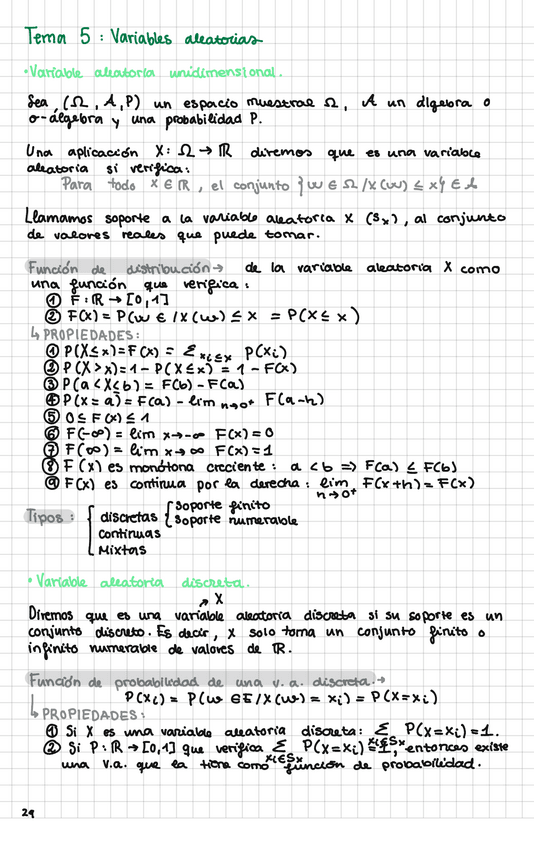 Tema 5 : Variables aleatorias
• Variable aleatoria unidimensional.
Sea (Ω, A, P) un espacio muestral Ω, A un álgebra o
σ-álgebra y una probabilidad P.
Una aplicación X: Ω → ℝ diremos que es una variable
aleatoria si verifica:
Para todo x ∈ ℝ, el conjunto {w ∈ Ω / X(w) ≤ x} ∈ A
Llamamos soporte a la variable aleatoria X (Sx), al conjunto
de valores reales que puede tomar.
Función de distribución → de la variable aleatoria X como
una función que verifica:
① F: ℝ → [0,1]
② F(x) = P(w ∈ / X(w) ≤ x = P(X ≤ x)
↳ PROPIEDADES:
① P(X≤x) = F(x) = Σ xi≤x P(xi)
② P(X>x) = 1 - P(X≤x) = 1 - F(x)
③ P(a<X≤b) = F(b) - F(a)
④ P(x=a) = F(a) - lim h→0⁺ F(a-h)
⑤ 0 ≤ F(x) ≤ 1
⑥ F(-∞) = lim x→-∞ F(x) = 0
⑦ F(∞) = lim x→∞ F(x) = 1
⑧ F(x) es monótona creciente: a < b ⇒ F(a) ≤ F(b)
⑨ F(x) es continua por la derecha: lim h→0⁺ F(x+h) = F(x)
Tipos: { discretas { soporte finito
soporte numerable
continuas
Mixtas
• Variable aleatoria discreta.
↗ X
Diremos que es una variable aleatoria discreta si su soporte es un
conjunto discreto. Es decir, X solo toma un conjunto finito o
infinito numerable de valores de ℝ.
Función de probabilidad de una v.a. discreta. →
P(xi) = P(w ∈ E / X(w) = xi) = P(X=xi)
↳ PROPIEDADES:
① Si X es una variable aleatoria discreta: Σ xi∈Sx P(X=xi) = 1.
② Si P: ℝ → [0,1] que verifica Σ xi∈Sx P(X=xi) = 1, entonces existe
una v.a. que la tiene como función de probabilidad.
29